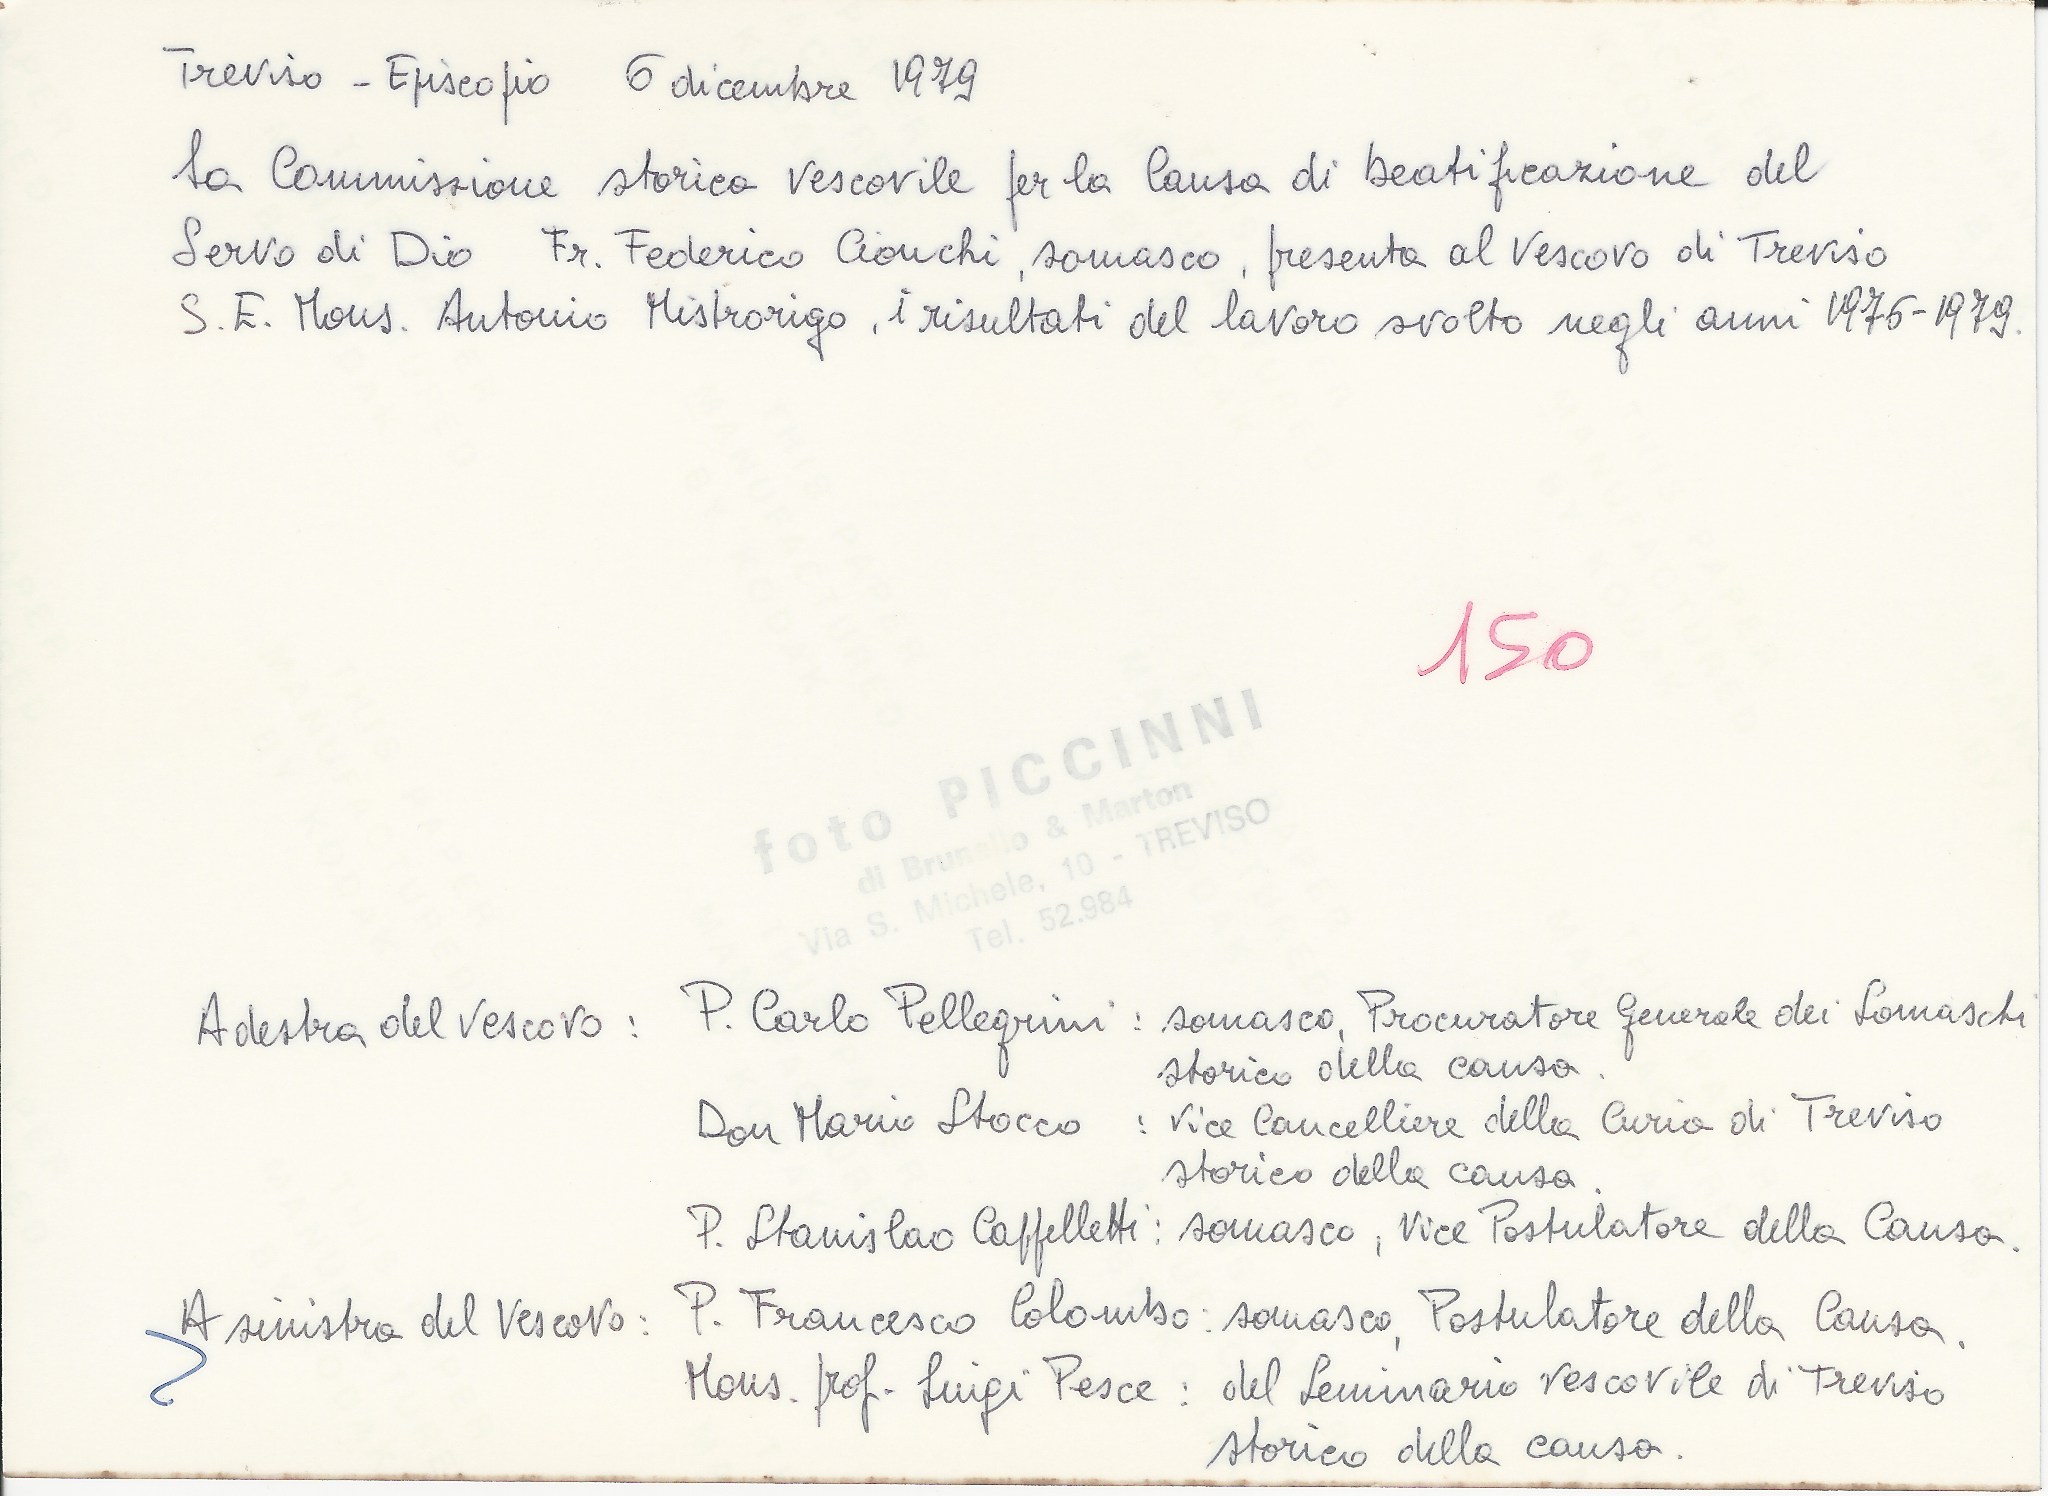 Treviso - Episcopio 6 dicembre 1979
La Commissione storica vescovile per la Causa di beatificazione del
Servo di Dio Fr. Federico Cionchi, somasco, presenta al Vescovo di Treviso
S. E. Mons. Antonio Mistrorigo, i risultati del lavoro svolto negli anni 1976-1979.
150
foto PICCINNI
di Brunello & Marton
Via S. Michele, 10 - TREVISO
Tel. 52.984
A destra del Vescovo : P. Carlo Pellegrini : somasco, Procuratore Generale dei Somaschi
storico della causa.
Don Mario Stocco : Vice Cancelliere della Curia di Treviso
storico della causa.
P. Stanislao Cappelletti : somasco, Vice Postulatore della Causa.
A sinistra del Vescovo : P. Francesco Colombo : somasco, Postulatore della Causa.
Mons. prof. Luigi Pesce : del Seminario vescovile di Treviso
storico della causa.